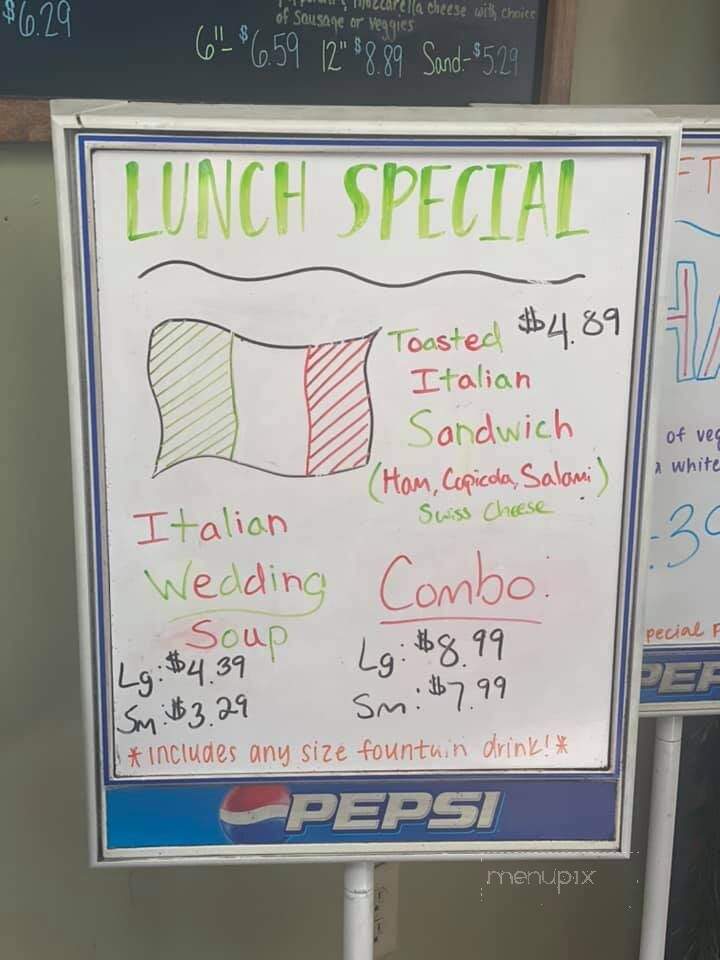 $6.29
mozzarella cheese with choice
of Sausage or veggies
6"- $6.59 12" $8.89 Sand-$5.29
LUNCH SPECIAL
Toasted $4.89
Italian
Sandwich
(Ham, Capicola, Salami)
Swiss Cheese
Italian
Wedding
Soup
Lg: $4.39
Sm: $3.29
Combo:
Lg: $8.99
Sm: $7.99
*includes any size fountain drink!*
PEPSI
of veg
white
pecial F
PEP
menupix